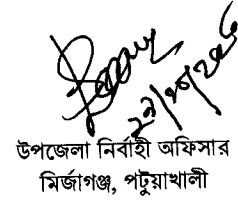 উপজেলা নির্বাহী অফিসার
মির্জাগঞ্জ, পটুয়াখালী